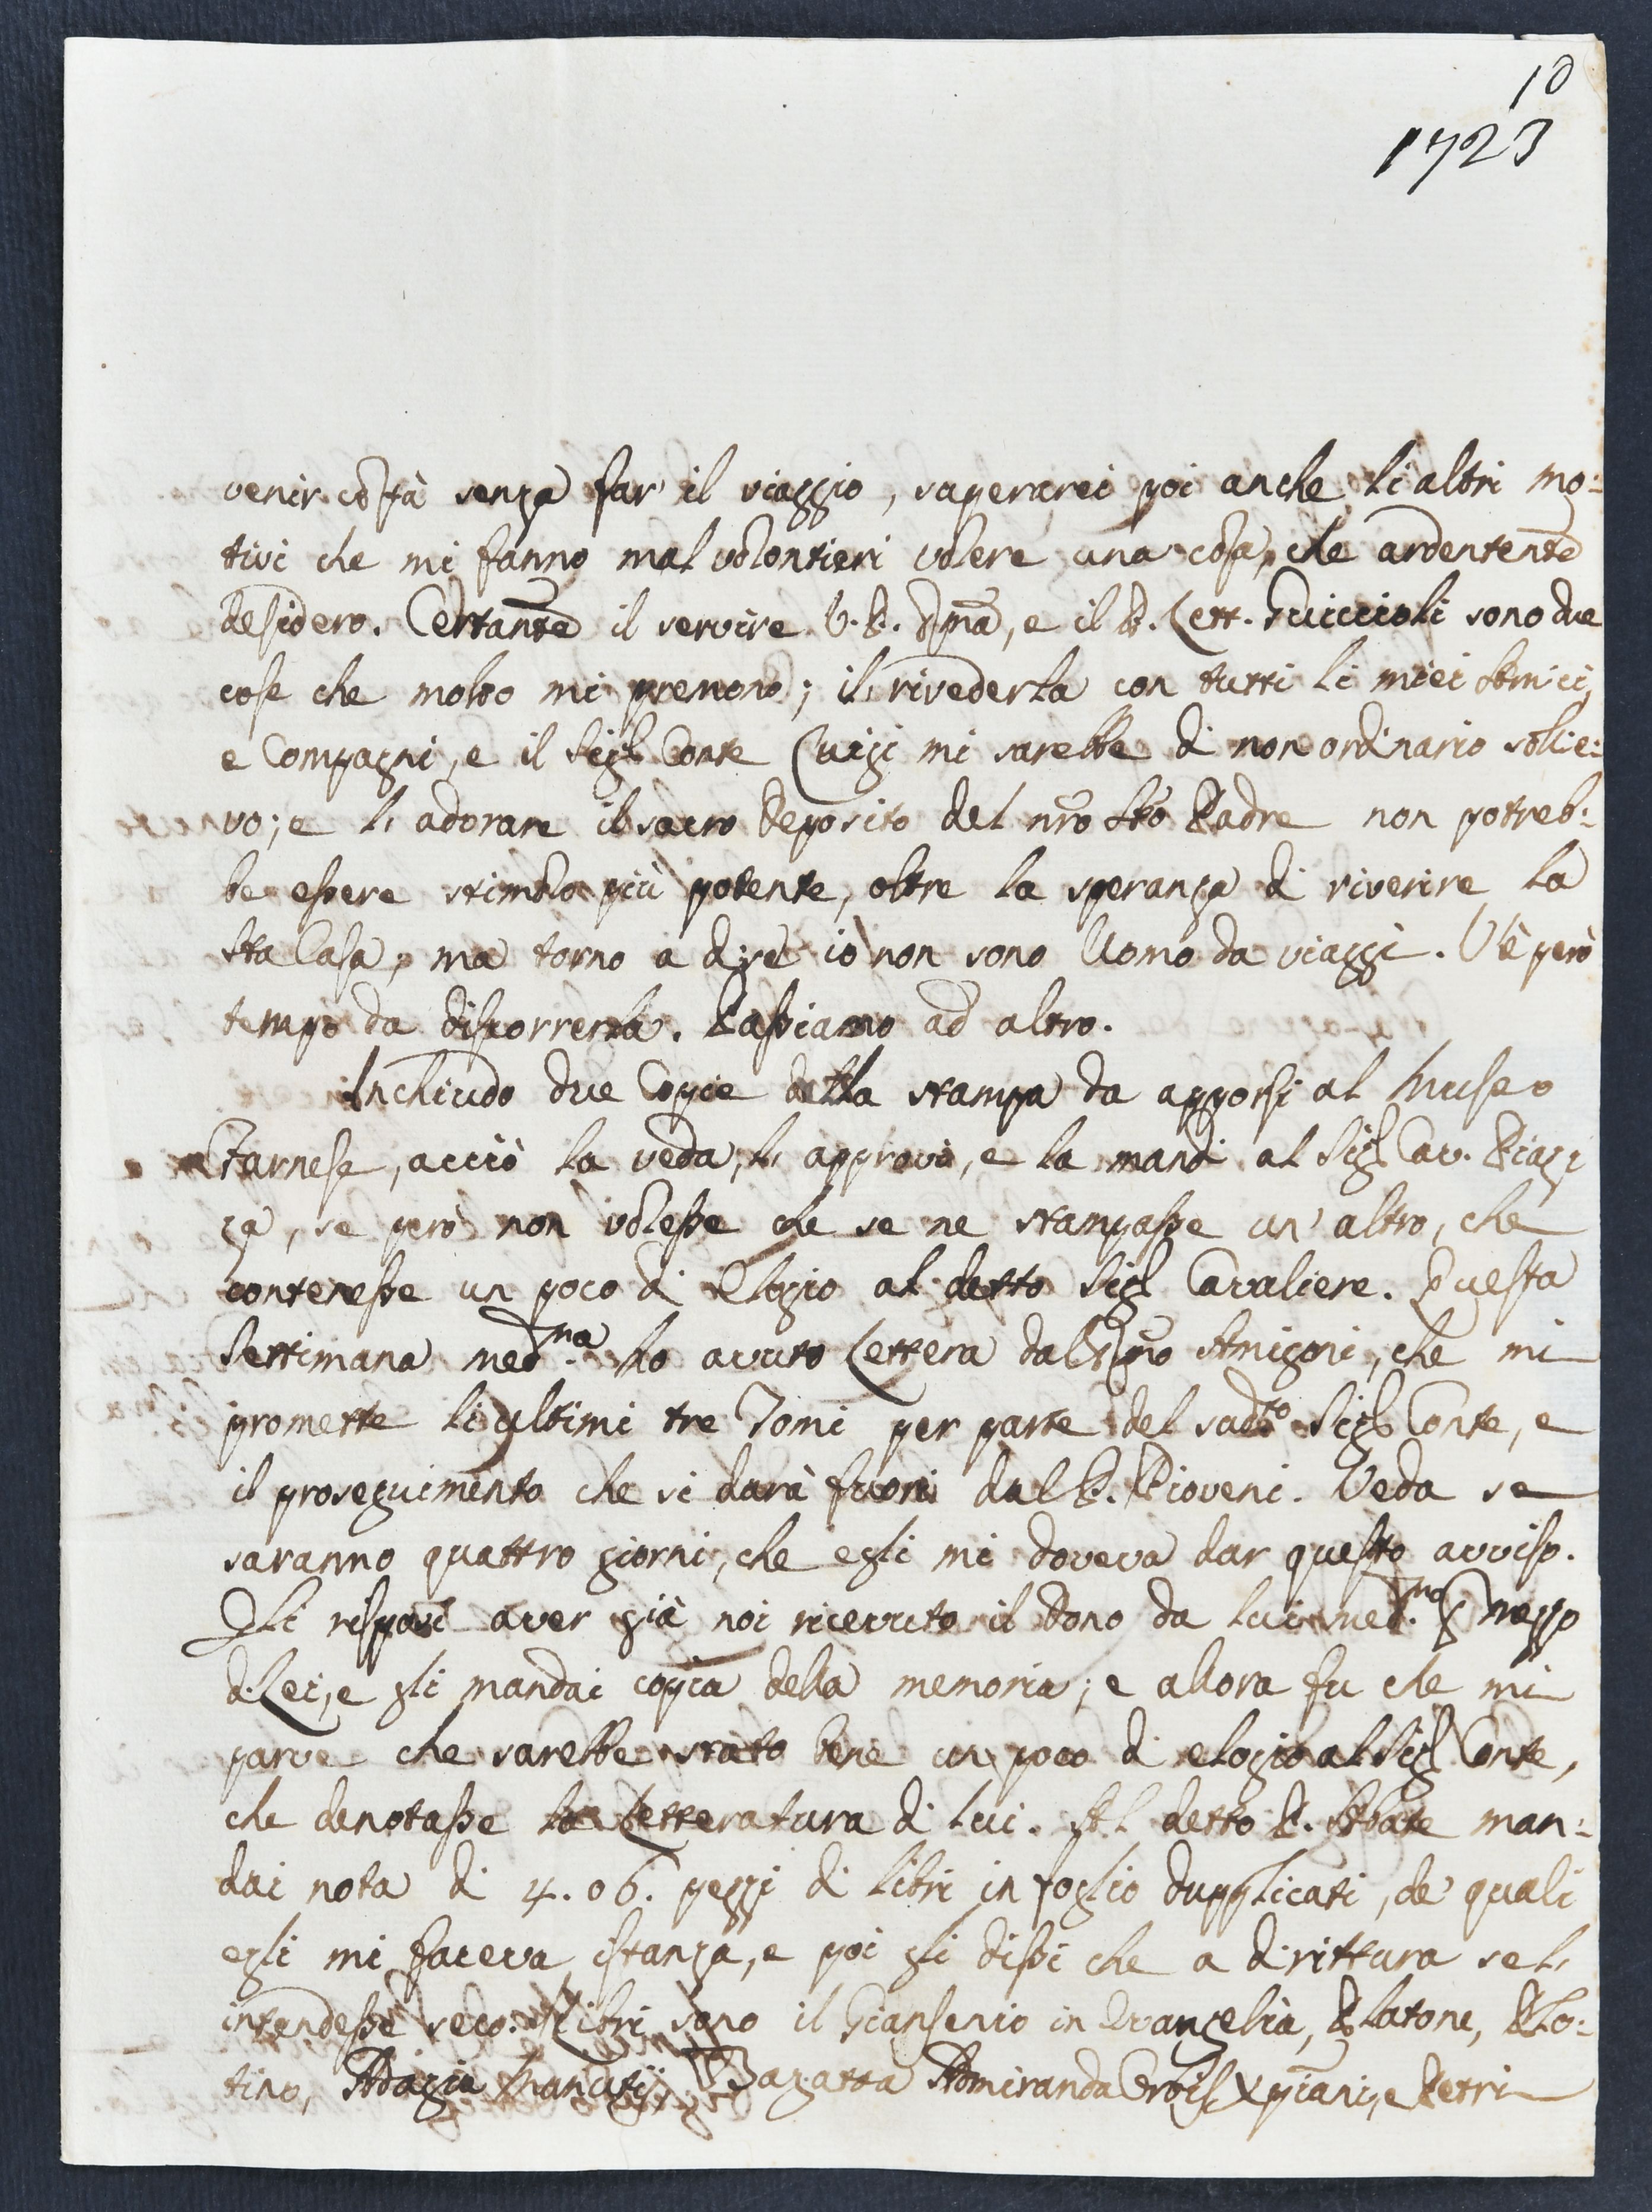 10
1723
venir costà senza far il viaggio, superarei poi anche li altri mo:
tivi che mi fanno mal volontieri volere una cosa, che ardentente
desidero. Certante il servire V. P. Rma, e il P. Lett. Guiccioli sono due
cose che molto mi premono; il rivederla con tutti li miei Amici,
e Compagni, e il Sig.r Conte Luigi mi sarebbe di non ordinario sollie:
vo; e l'adorare il sacro Deposito del nro Sto Padre non potreb:
be essere stimolo più potente, oltre la speranza di riverire la
Sta Casa; ma torno a dire io non sono Uomo da viaggi. V'è però
tempo da discorrerla. Passiamo ad altro.
Inchiudo due Copie della stampa da apporsi al Museo
Farnese, acciò la veda, l'approvi, e la mandi al Sig.r Cav. Piaz
za, se però non volesse che se ne stampasse un' altro, che
contenesse un poco di Elogio al detto Sig.r Cavaliere. Questa
Settimana med.ma ho avuto Lettera dal Rmo Amigoni, che mi
promette li ultimi tre Tomi per parte del sud.to Sig.r Conte, e
il proseguimento che si darà fuori dal P. Pioveni. Veda se
saranno quattro giorni, che egli mi doveva dar questo avviso.
Gli risposi aver già noi ricevuto il dono da lui med.mo p mezzo
di Lei, e gli mandai copia della memoria; e allora fu che mi
parve che sarebbe stato bene un poco di elogio al Sig.r Conte,
che denotasse la Letteratura di lui. Al detto P. Abate man:
dai nota di 4.06. pezzi di libri in foglio dupplicati, de' quali
egli mi faceva istanza, e poi gli dissi che a dirittura se l'
intendesse seco. Libri sono il Giansenio in Evangelia, Platone, Plo:
tino, Adagia Manutij, Bagatta Admiranda Orbis Xpiani, e Petri